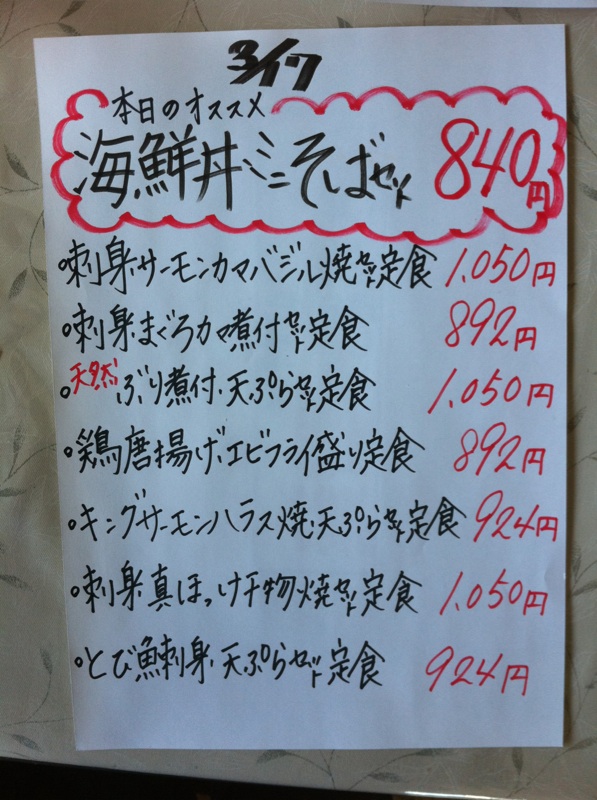 3/17
本日のオススメ
海鮮丼ミニそばセット 840円
刺身サーモンカマバジル焼セット定食 1,050円
刺身まぐろカマ煮付セット定食 892円
天然ぶり煮付天ぷらセット定食 1,050円
鶏唐揚げエビフライ盛り定食 892円
キングサーモンハラス焼天ぷらセット定食 924円
刺身真ほっけ干物焼セット定食 1,050円
とび魚刺身天ぷらセット定食 924円